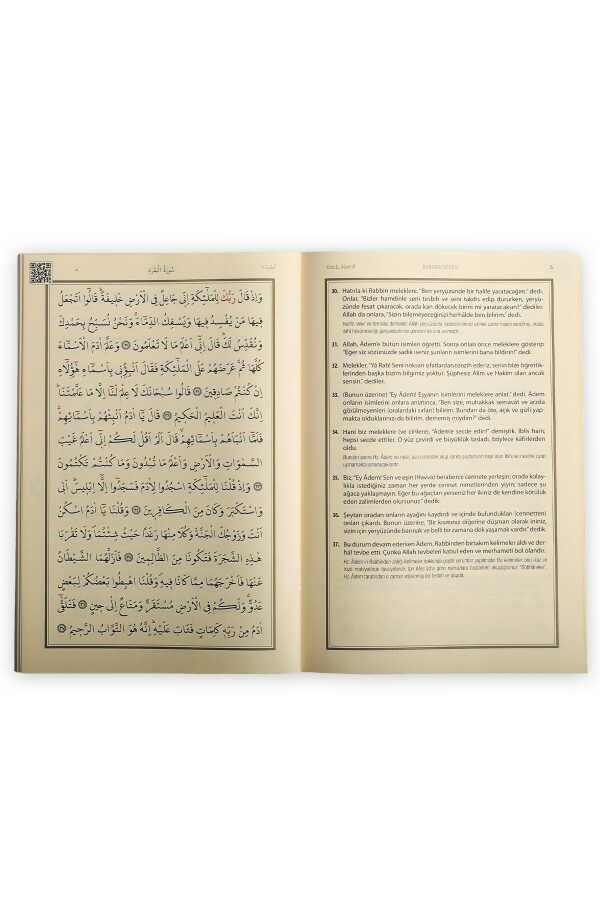 سُورَةُ الْبَقَرَةِ
وَاِذْ قَالَ رَبُّكَ لِلْمَلٰٓئِكَةِ اِنّ۪ي جَاعِلٌ فِي الْاَرْضِ خَل۪يفَةًۜ قَالُٓوا اَتَجْعَلُ
ف۪يهَا مَنْ يُفْسِدُ ف۪يهَا وَيَسْفِكُ الدِّمَٓاءَۚ وَنَحْنُ نُسَبِّحُ بِحَمْدِكَ
وَنُقَدِّسُ لَكَۜ قَالَ اِنّ۪ٓي اَعْلَمُ مَا لَا تَعْلَمُونَ ﴿٣٠﴾ وَعَلَّمَ اٰدَمَ الْاَسْمَٓاءَ
كُلَّهَا ثُمَّ عَرَضَهُمْ عَلَى الْمَلٰٓئِكَةِ فَقَالَ اَنْبِؤُ۫ن۪ي بِاَسْمَٓاءِ هٰٓؤُ۬لَٓاءِ
اِنْ كُنْتُمْ صَادِق۪ينَ ﴿٣١﴾ قَالُوا سُبْحَانَكَ لَا عِلْمَ لَنَٓا اِلَّا مَا عَلَّمْتَنَاۜ
اِنَّكَ اَنْتَ الْعَل۪يمُ الْحَك۪يمُ ﴿٣٢﴾ قَالَ يَٓا اٰدَمُ اَنْبِئْهُمْ بِاَسْمَٓائِهِمْۚ
فَلَمَّٓا اَنْبَاَهُمْ بِاَسْمَٓائِهِمْۙ قَالَ اَلَمْ اَقُلْ لَكُمْ اِنّ۪ٓي اَعْلَمُ غَيْبَ
السَّمٰوَاتِ وَالْاَرْضِ وَاَعْلَمُ مَا تُبْدُونَ وَمَا كُنْتُمْ تَكْتُمُونَ
﴿٣٣﴾ وَاِذْ قُلْنَا لِلْمَلٰٓئِكَةِ اسْجُدُوا لِاٰدَمَ فَسَجَدُٓوا اِلَّٓا اِبْل۪يسَۜ اَبٰى
وَاسْتَكْبَرَ وَكَانَ مِنَ الْكَافِر۪ينَ ﴿٣٤﴾ وَقُلْنَا يَٓا اٰدَمُ اسْكُنْ
اَنْتَ وَزَوْجُكَ الْجَنَّةَ وَكُلَا مِنْهَا رَغَدًا حَيْثُ شِئْتُمَاۖ وَلَا تَقْرَبَا
هٰذِهِ الشَّجَرَةَ فَتَكُونَا مِنَ الظَّالِم۪ينَ ﴿٣٥﴾ فَاَزَلَّهُمَا الشَّيْطَانُ
عَنْهَا فَاَخْرَجَهُمَا مِمَّا كَانَا ف۪يهِۖ وَقُلْنَا اهْبِطُوا بَعْضُكُمْ لِبَعْضٍ
عَدُوٌّۚ وَلَكُمْ فِي الْاَرْضِ مُسْتَقَرٌّ وَمَتَاعٌ اِلٰى ح۪ينٍ ﴿٣٦﴾ فَتَلَقّٰٓى
اٰدَمُ مِنْ رَبِّه۪ كَلِمَاتٍ فَتَابَ عَلَيْهِۜ اِنَّهُ هُوَ التَّوَّابُ الرَّح۪يمُ ﴿٣٧﴾
5
30. Hatırla ki Rabbin meleklere, "Ben yeryüzünde bir halife yaratacağım." dedi.
Onlar, "Bizler hamdinle seni tesbih ve seni takdis edip dururken, yeryü-
zünde fesat çıkaracak, orada kan dökecek birini mi yaratacaksın?" dediler.
Allah da onlara, "Sizin bilemeyeceğinizi herhâlde ben bilirim." dedi.
31. Allah, Âdem'e bütün isimleri öğretti. Sonra onları önce meleklere gösterip
"Eğer siz sözünüzde sadık iseniz şunların isimlerini bana bildirin!" dedi.
32. Melekler, "Yâ Rab! Seni noksan sıfatlardan tenzih ederiz, senin bize öğrettik-
lerinden başka bizim bilgimiz yoktur. Şüphesiz Alîm ve Hakîm olan ancak
sensin." dediler.
33. (Bunun üzerine) "Ey Âdem! Eşyanın isimlerini meleklere anlat." dedi. Âdem
onların isimlerini onlara anlatınca, "Ben size, muhakkak semavat ve arzda
görülmeyenleri (oralardaki sırları) bilirim. Bundan da öte, açık ve gizli yap-
makta olduklarınızı da bilirim, dememiş miydim?" dedi.
34. Hani biz meleklere (ve cinlere), "Âdem'e secde edin!" demiştik. İblis hariç
hepsi secde ettiler. O yüz çevirdi ve büyüklük tasladı, böylece kâfirlerden
oldu.
35. Biz, "Ey Âdem! Sen ve eşin (Havva) beraberce cennete yerleşin; orada kolay-
lıkla istediğiniz zaman her yerde cennet nimetlerinden yiyin; sadece şu
ağaca yaklaşmayın. Eğer bu ağaçtan yerseniz her ikiniz de kendine kötülük
eden zalimlerden olursunuz." dedik.
36. Şeytan oradan onların ayağını kaydırdı ve içinde bulundukları (cennetten)
onları çıkardı. Bunun üzerine, "Bir kısmınız diğerine düşman olarak ininiz,
sizin için yeryüzünde barınak ve belli bir zamana dek yaşamak vardır." dedik.
37. Bu durum devam ederken Âdem, Rabbinden birtakım kelimeler aldı ve der-
hâl tevbe etti. Çünkü Allah tevbeleri kabul eden ve merhameti bol olandır.